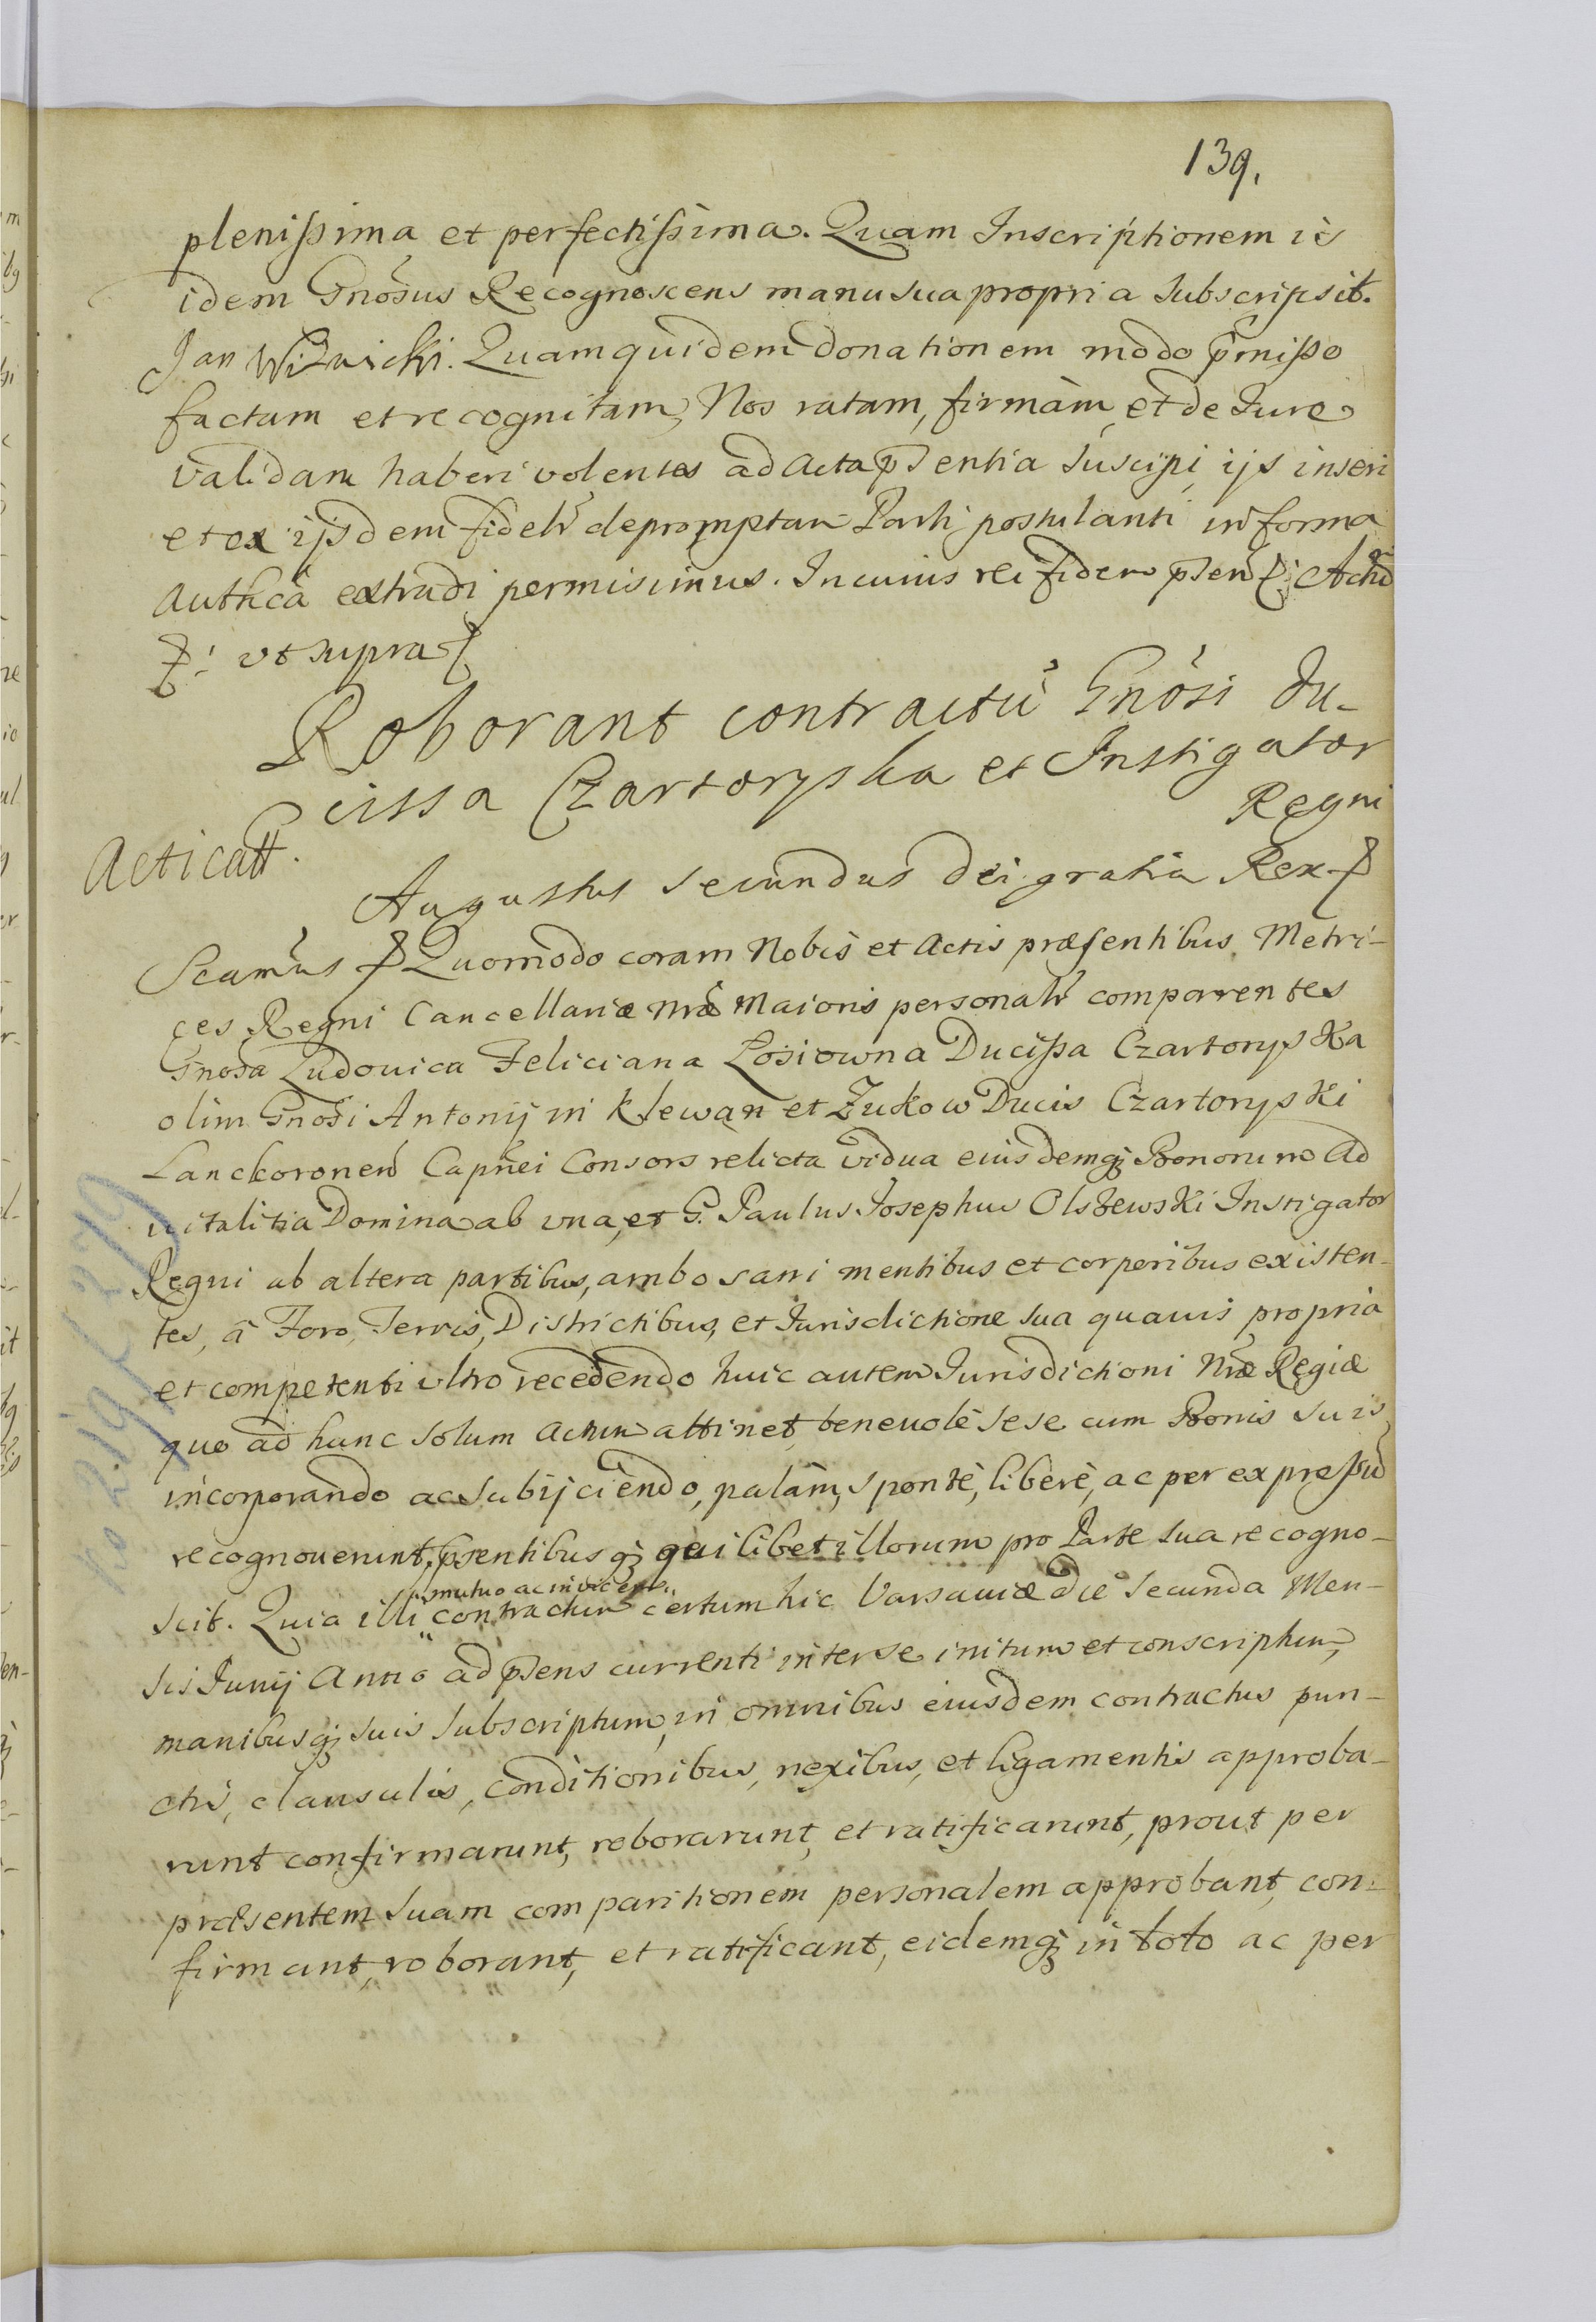 139.
plenißima et perfectißima. Quam Inscriptionem is
idem Gnosus Recognoscens manu sua propria subscripsit.
Jan Wiznicki. Quam quidem donationem modo pmißo
factam et recognitam, Nos ratam, firmam, et de Jure
validam haberi volentes ad Acta psentia suscipi, ijs inseri
et ex ijsdem fidelr depromptam Parti postulanti in forma
Authca extradi permisimus. In cuius rei fidem psen Actu
ut supra
Roborant contractu Gnosi Du-
cissa Czartoryska et Instigator
Regni
Acticatt.
Augustus Secundus Dei gratia Rex
Scamus Quomodo coram Nobis et Actis præsentibus Metri-
ces Regni Cancellariæ nræ Maioris personalr comparentes
Gnosa Ludovica Feliciana Łosiowna Ducißa Czartoryska
olim Gnosi Antonij in Klewan et Zukow Ducis Czartoryski
Lanckoronen Capnei Consors relicta vidua eiusdemq Bonorum ad
vitalitia Domina ab una, et G. Paulus Josephus Olszewski Instigator
Regni ab altera partibus, ambo sani mentibus et corporibus existen-
tes, â Foro, Terris, Districtibus, et Jurisdictione sua quavis propria
et competenti ultro recedendo huic autem Jurisdictioni Nræ Regiæ
quo ad hunc solum actum attinet, benevolè sese cum Bonis suis
incorporando ac subijciendo, palàm, spontè, liberè, ac per expreßu
recognouerunt, psentibusq quilibet illorum pro Parte sua recogno-
mutuo ac invicem
scit. Quia illi contractum certum hic Varsaviæ die secunda Men-
sis Junij Anno ad psens currenti inter se initum et conscriptum,
manibusq suis subscriptum, in omnibus eiusdem contractus pun-
ctis, clausulis, conditionibus, nexibus, et ligamentis approba-
runt confirmarunt, roborarunt, et ratificarunt, prout per
præsentem suam comparitionem personalem approbant, con-
firmant, roborant, et ratificant, eidemq in toto ac per